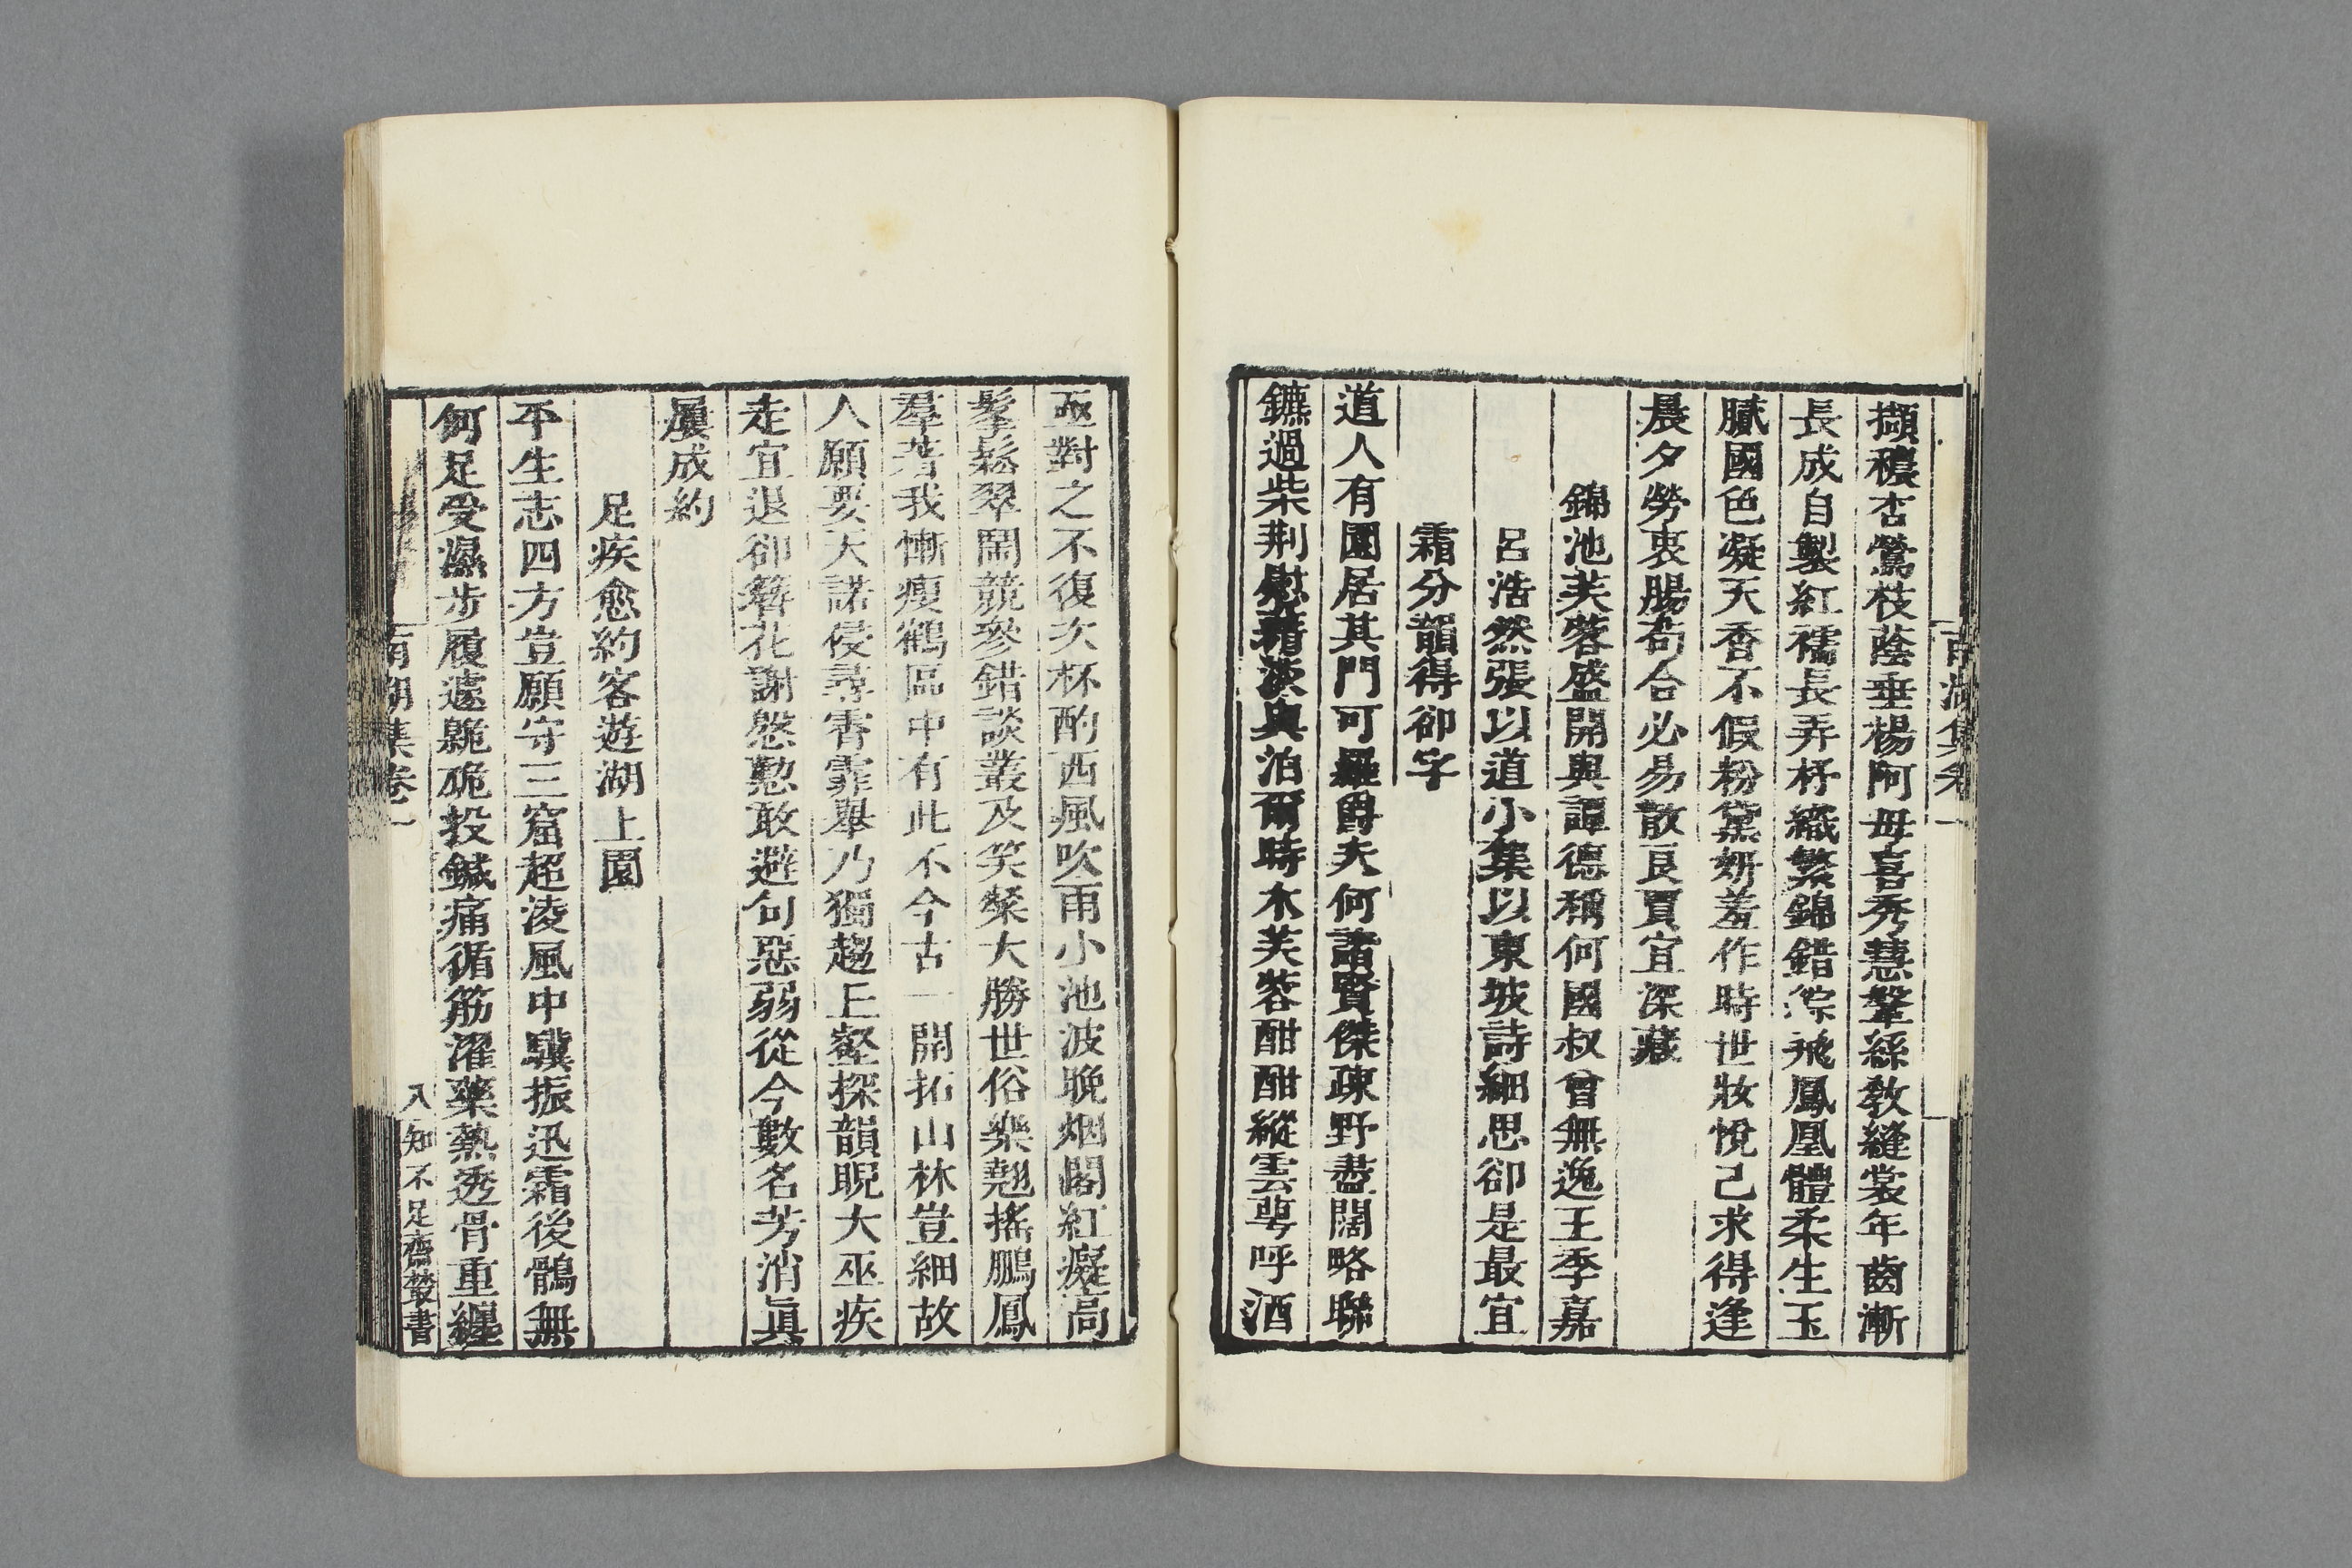 南湖集卷一
擷穠杏鶯枝蔭垂楊阿母喜秀慧鞶絲敎縫裳年齒漸
長成自製紅襦長弄杼織繁錦錯綜飛鳳凰體柔生玉
膩國色凝天香不假粉黛妍羞作時世妝悅己求得逢
晨夕勞衷腸苟合必易散良賈宜深藏
錦池芙蓉盛開與譚德稱何國叔曾無逸王季嘉
呂浩然張以道小集以東坡詩細思卻是最宜
霜分韻得卻字
道人有園居其門可羅爵夫何諸賢傑疎野盡闊略聯
鑣過柴荆慰藉淡與泊爾時木芙蓉酣酣縱雲萼呼酒
亟對之不復次杯酌西風吹雨小池波晚烟閣紅癡高
髼鬆翠鬧競參錯談叢及笑槩大勝世俗樂翹搖鵬鳳
羣著我慚瘦鶴區中有此不今古一開拓山林豈細故
人願要天諾侵尋霽霏舉乃獨趨上壑探韻睨大巫疾
走宜退卻簪花謝慇懃敢避句惡弱從今數名芳消眞
屢成約
足疾愈約客遊湖上園
平生志四方豈願守三窟超淩風中驥振迅霜後鶻無
何足受濕步履遽臲硊投鍼痛循筋濯藥熱透骨重纏
南湖集卷一
八 知不足齋叢書